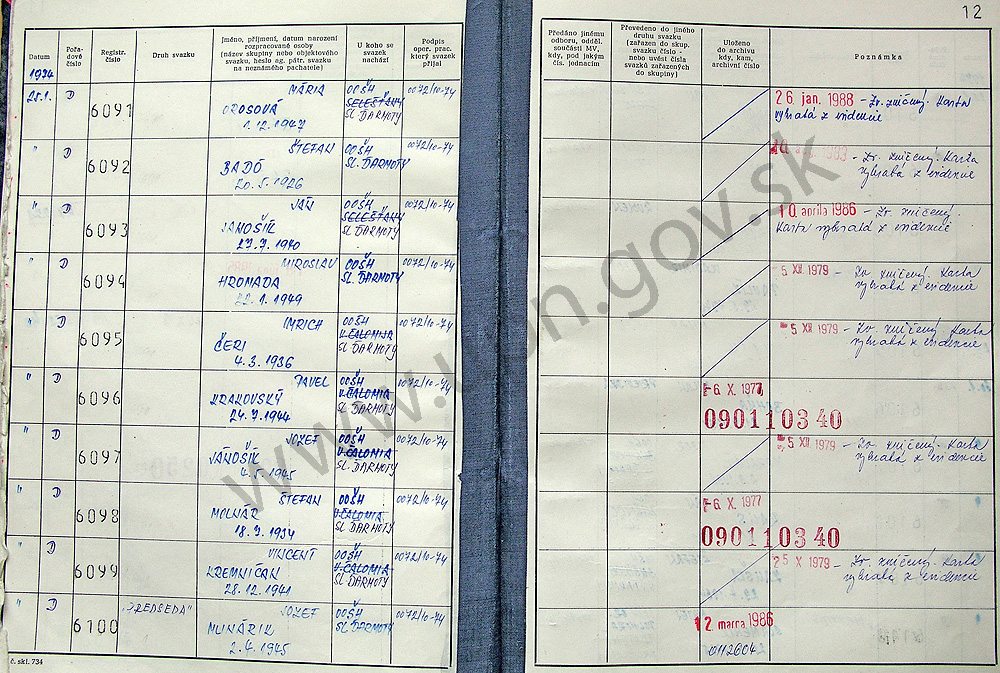 12
Datum
Pořadové číslo
Registr. číslo
Druh svazku
Jméno, příjmení, datum narození rozpracované osoby (název skupiny nebo objektového svazku, heslo ag. pátr. svazku na neznámého pachatele)
U koho se svazek nachází
Podpis oper. prac. který svazek přijal
Předáno jinému odboru, odděl. součásti MV, kdy, pod jakým čís. jednacím
Převedeno do jiného druhu svazku (zařazen do skup. svazku číslo - nebo uvést čísla svazků zařazených do skupiny)
Uloženo do archivu kdy, kam, archivní číslo
Poznámka
25.1. D 6091 MÁRIA OROSOVÁ 1.12.1947 OOŠH SELEŠŤANY SL. ĎARMOTY 0072/10-74
26. jan. 1988 - Zv. zničený. Karta vybratá z evidencie
" D 6092 ŠTEFAN BADÓ 20.5.1926 OOŠH SL. ĎARMOTY 0072/10-74
- Zv. zničený. Karta vybratá z evidencie
" D 6093 JÁN JANOŠÍK OOŠH SELEŠŤANY SL. ĎARMOTY 0072/10-74
10. apríla 1986 - Zv. zničený. Karta vybratá z evidencie
" D 6094 MIROSLAV HROMADA 22.1.1949 OOŠH SL. ĎARMOTY 0072/10-74
5 XII 1979 - Zv. zničený. Karta vybratá z evidencie
" D 6095 IMRICH ČERI 4.3.1936 OOŠH V. ČALOMIJA SL. ĎARMOTY 0072/10-74
5 XII 1979 - Zv. zničený. Karta vybratá z evidencie
" D 6096 PAVEL KRAKOVSKÝ OOŠH V. ČALOMIA SL. ĎARMOTY 0072/10-74
-6 X. 1977
0901103 40
" D 6097 JOZEF JÁNOŠÍK 4.5.1945 OOŠH V. ČALOMIA SL. ĎARMOTY 0072/10-74
5 XII 1979 - Zv. zničený. Karta vybratá z evidencie
" D 6098 ŠTEFAN MOLNÁR OOŠH V. ČALOMIA SL. ĎARMOTY 0072/10-74
-6 X. 1977
0901103 40
" D 6099 VINCENT KREMNIČAN 28.12.1941 OOŠH V. ČALOMIA SL. ĎARMOTY 0072/10-74
25 X 1979 - Zv. zničený. Karta vybratá z evidencie
" D 6100 "PREDSEDA" JOZEF MLINÁRIK 2.4.1945 OOŠH SL. ĎARMOTY 0072/10-74
12. marca 1986
0112604
č. skl. 734
www.upn.gov.sk